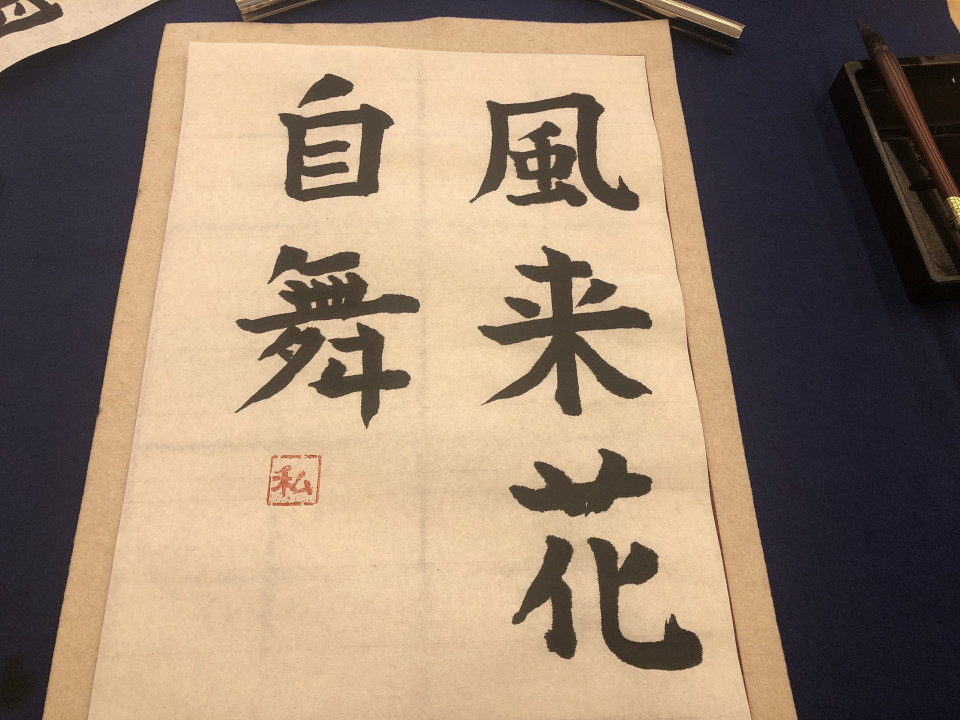 風来花
自舞
私